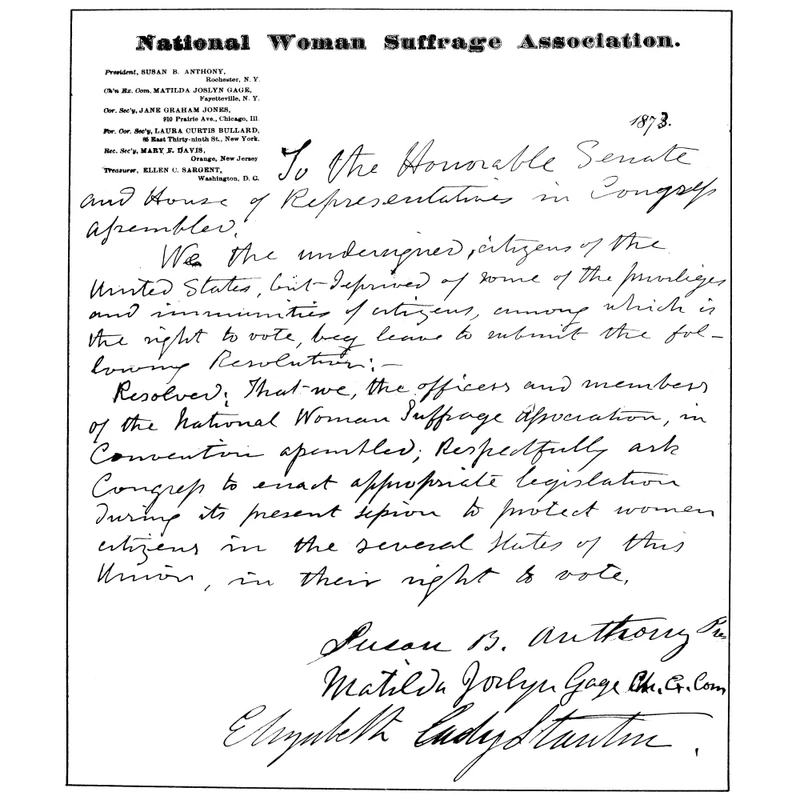 National Woman Suffrage Association.
President, SUSAN B. ANTHONY,
Rochester, N. Y.
Ch'n Ex. Com. MATILDA JOSLYN GAGE,
Fayetteville, N. Y.
Cor. Sec'y, JANE GRAHAM JONES,
910 Prairie Ave., Chicago, Ill.
For. Cor. Sec'y, LAURA CURTIS BULLARD,
85 East Thirty-ninth St., New York.
Rec. Sec'y, MARY F. DAVIS,
Orange, New Jersey
Treasurer, ELLEN C. SARGENT,
Washington, D. C.
1873.
To the Honorable Senate
and House of Representatives in Congress
assembled.
We the undersigned, citizens of the
United States, but deprived of some of the privileges
and immunities of citizens, among which is
the right to vote, beg leave to submit the fol-
lowing Resolution:-
Resolved; That we, the officers and members
of the National Woman Suffrage Association, in
Convention assembled; Respectfully ask
Congress to enact appropriate legislation
during its present session to protect women
citizens in the several States of this
Union, in their right to vote.
Susan B. Anthony Pres
Matilda Joslyn Gage Ch. Ex. Com
Elizabeth Cady Stanton.